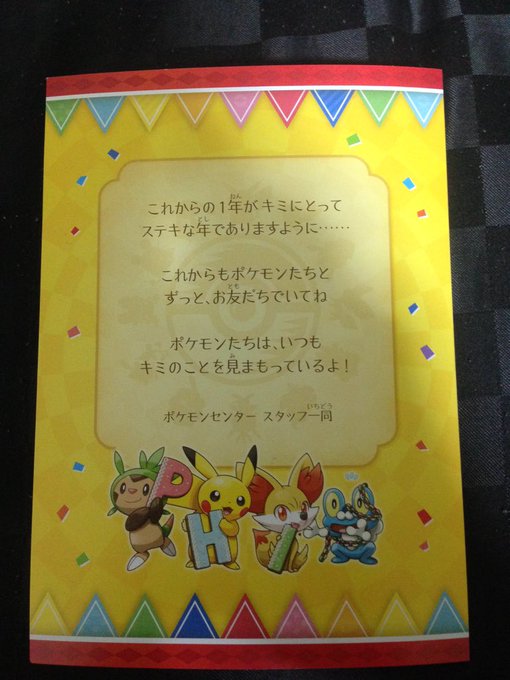 これからの1年がキミにとって
ステキな年でありますように……
これからもポケモンたちと
ずっと、お友だちでいてね
ポケモンたちは、いつも
キミのことを見まもっているよ！
ポケモンセンター スタッフ一同
P H I